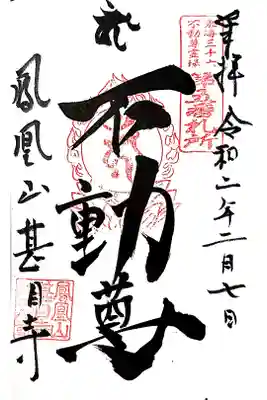 奉拝 令和二年二月七日
東海三十六
不動尊霊場
第五番札所
不動尊
鳳凰山甚目寺
鳳凰山